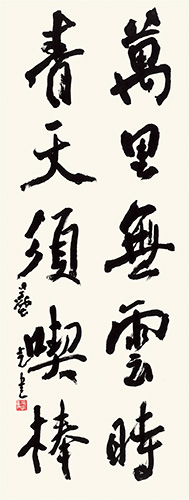 萬里無雲時
青天須喫棒